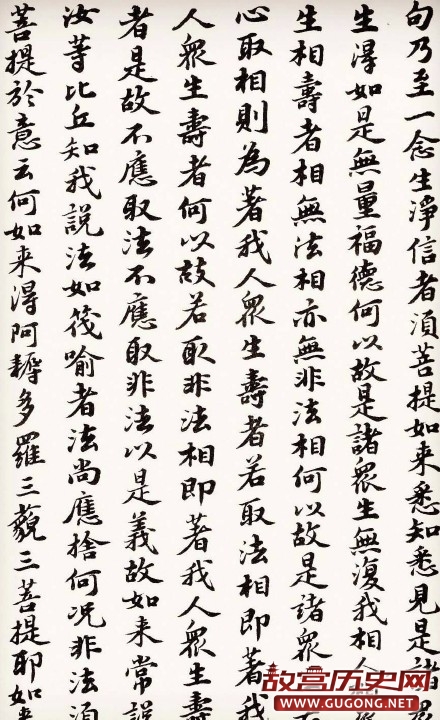 句乃至一念生淨信者須菩提如来悉知悉見是諸
生淂如是無量福德何以故是諸眾生無復我相人
生相壽者相無法相亦無非法相何以故是諸眾
心取相則為著我人眾生壽者若取法相即著我
人眾生壽者何以故若取非法相即著我人眾生壽
者是故不應取法不應取非法以是義故如来常說
汝等比丘知我說法如筏喻者法尚應捨何况非法須
菩提於意云何如来淂阿耨多羅三藐三菩提耶如来
故宫历史网
WWW.GUGONG.NET